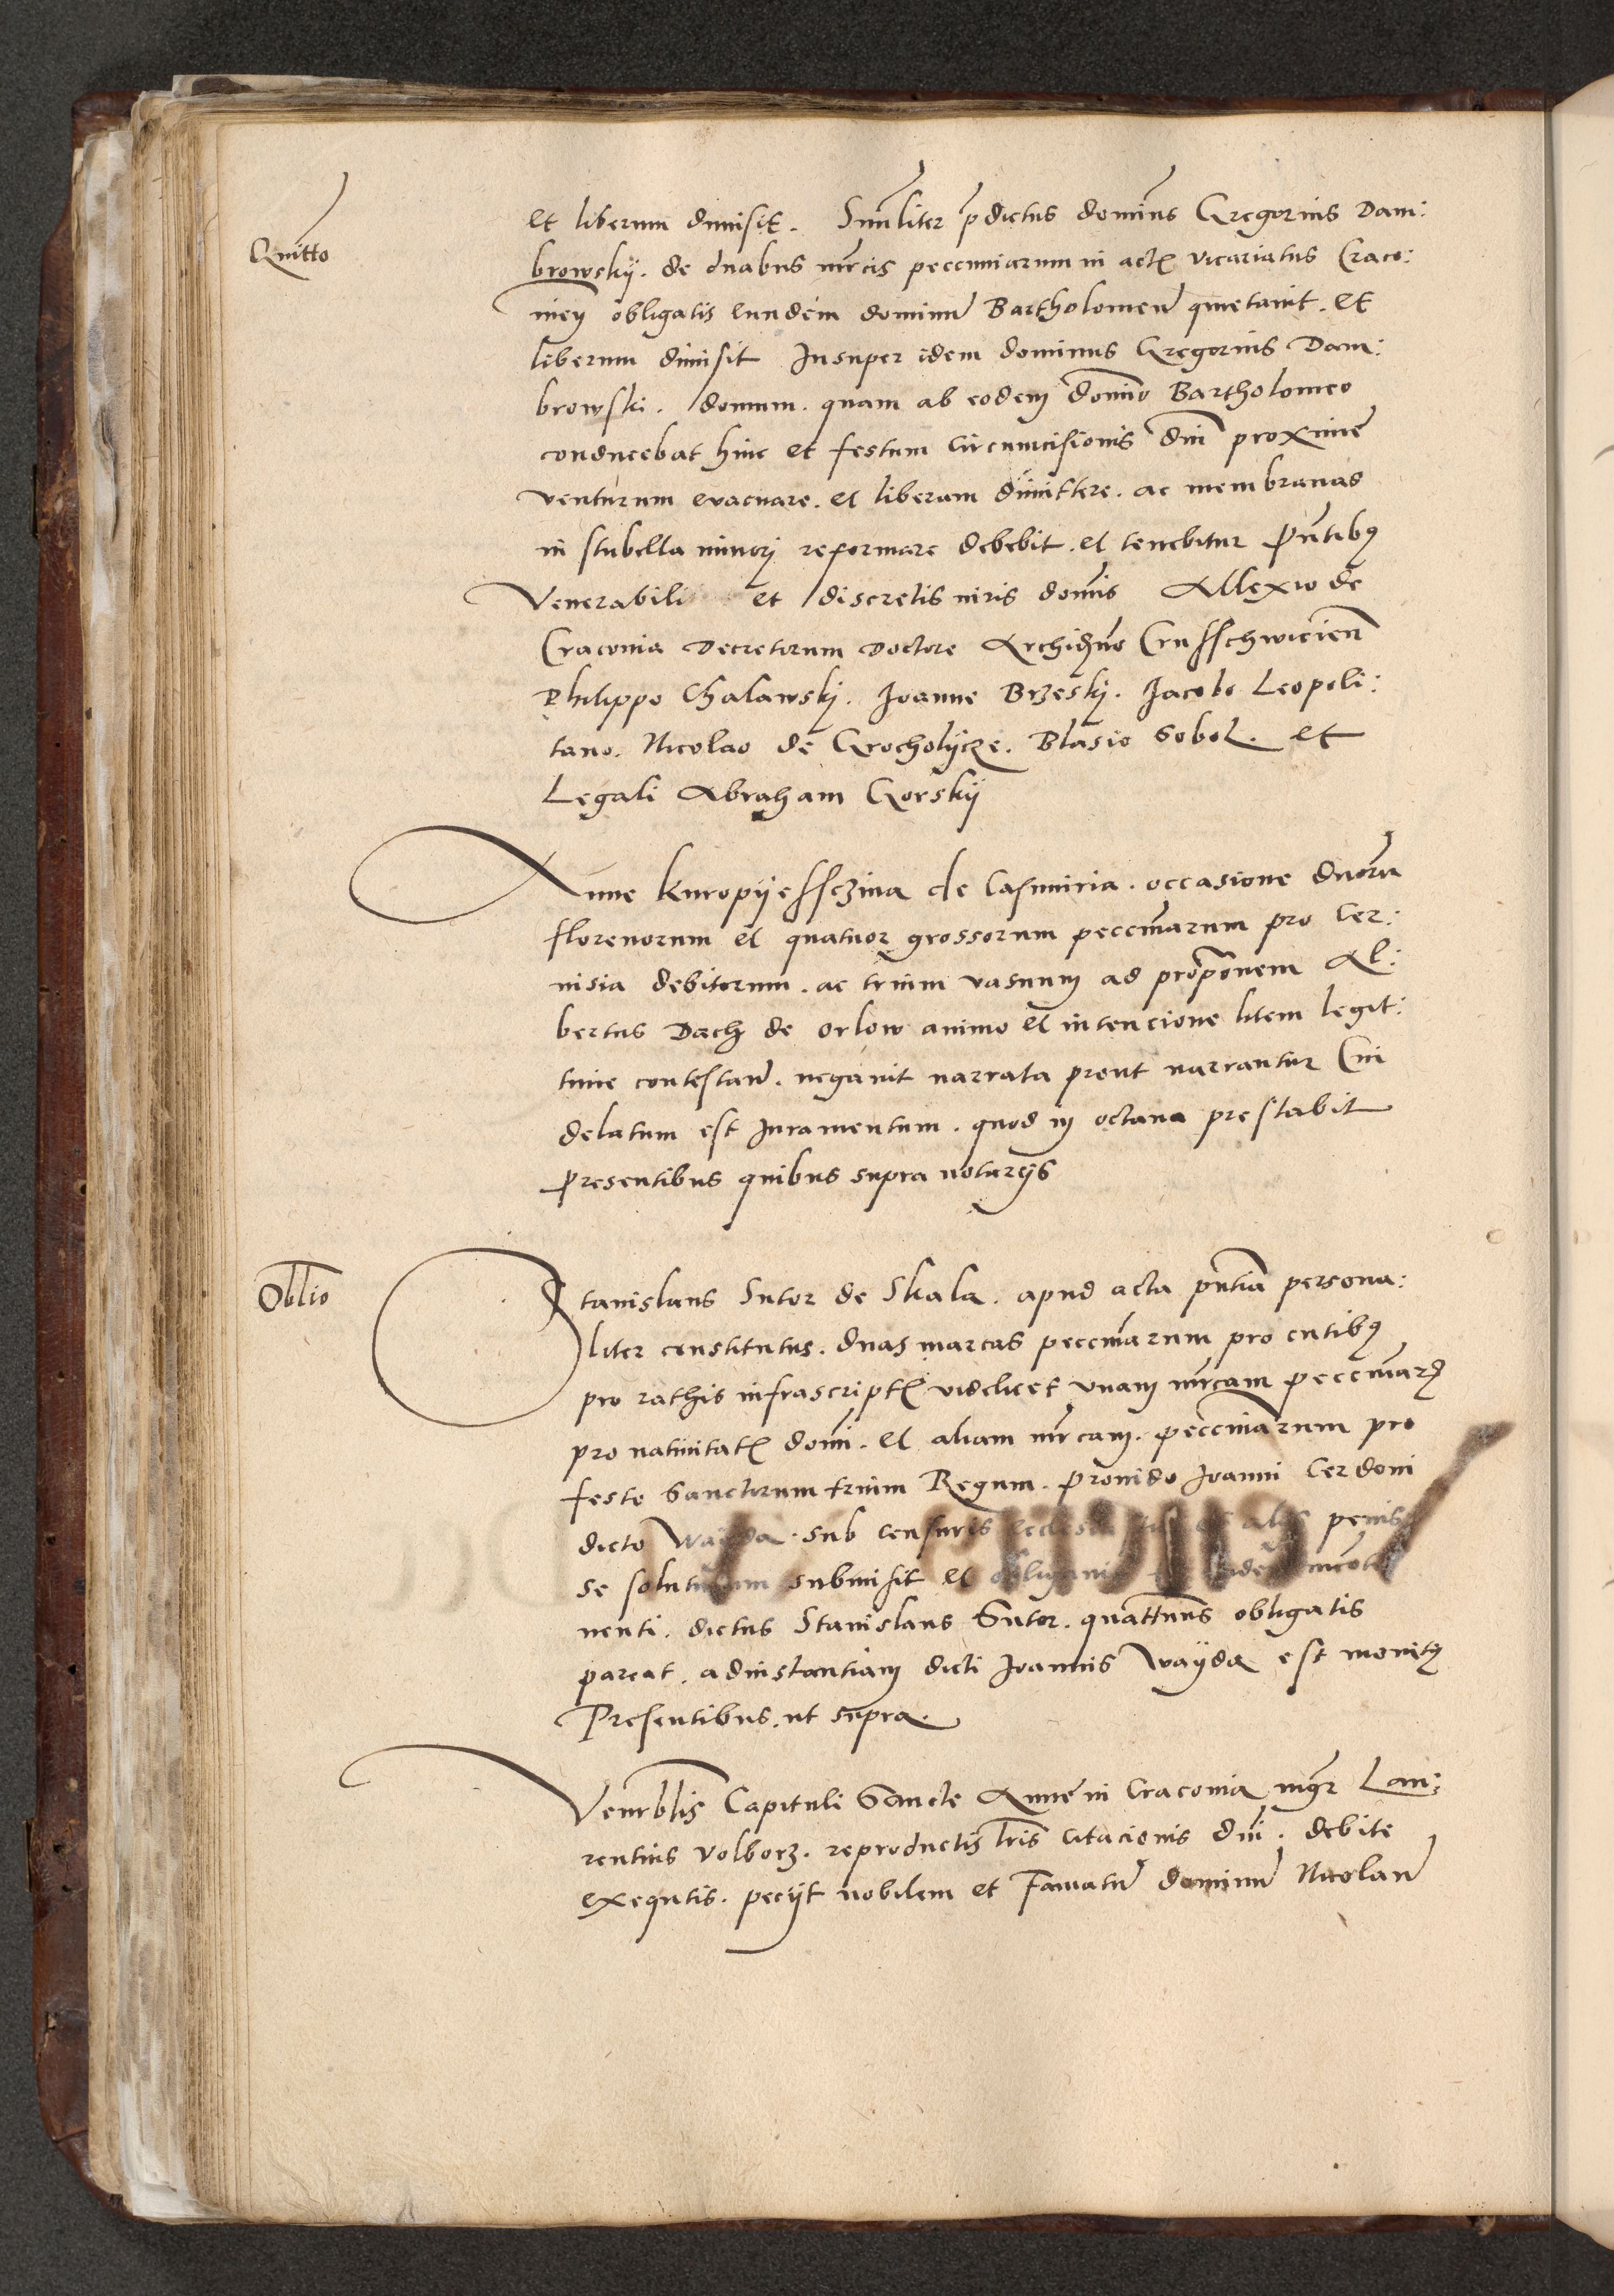 et liberum dimisit. Similiter p̄dictus dominus Gregorius Dam:
Quitto
browskÿ. de duabus mrcis peccuniarum in actꝭ vicariatus Craco:
nien̄ obligatis eundem dominū Bartholomeū quietauit. et
liberum dimisit Insuper idem dominus Gregorius Dam:
browski. domum. quam ab eodem domĩo Bartholomeo
conducebat hinc et festum Circumcisionis Dnĩ proxime
venturum evacuare. et liberam dimittere. ac membranas
in stubella minori reformare debebit. et tenebitur Pn̄tibꝰ
Venerabili et discretis viris domĩs Allexio de
Craconia Decretorum Doctore Archidn̄o Crusschwicien̄
Philippo Chalawskj. Joanne Brzeskj. Jacobo Leopoli:
tano. Nicolao de Grocholÿcze. Blasio Sobol. et
Legali Abraham Gorskÿ
Anne KuropÿessczÿnA de Casimiria. occasione duorū
florenorum et quatuor grossorum peccuniarum pro Cer:
uisia debitorum. ac trium vasuum ad proponem Al:
bertus Dach de Orlow animo et intencione litem legit:
time contestan̄. negauit narrata prout narrantur Cui
delatum est Juramentum. quod in octaua prestabit
Presentibus quibus supra notarijs
Oblio
Stanislaus Sutor de Skala. apud acta pn̄tia persona:
liter constitutus. duas marcas peccuniarum pro cutibꝰ
pro rathis infrascriptꝭ videlicet vnam mrcam peccuniarꝝ
pro natiuitatꝭ domĩ. et aliam mrcam. peccuniarum pro
festo Sanctorum trium Regum. prouido Joanni Cerdoni
dicto Wayda. sub censuris penis
se soluturum submisit et
nenti. dictus Stanislaus Sutor. quattenus obligatis
pareat. ad instantiam dicti Joannis Wayda est monitꝰ
Presentibus. ut supra.
Venerblis Capituli Sancte Anne in Craconia mgr̄ Lau:
rentius Volborz. reproductis lrĩs citacionis dnĩ. debite
exequtis. pecÿt nobilem et Famatū dominū Nicolaū